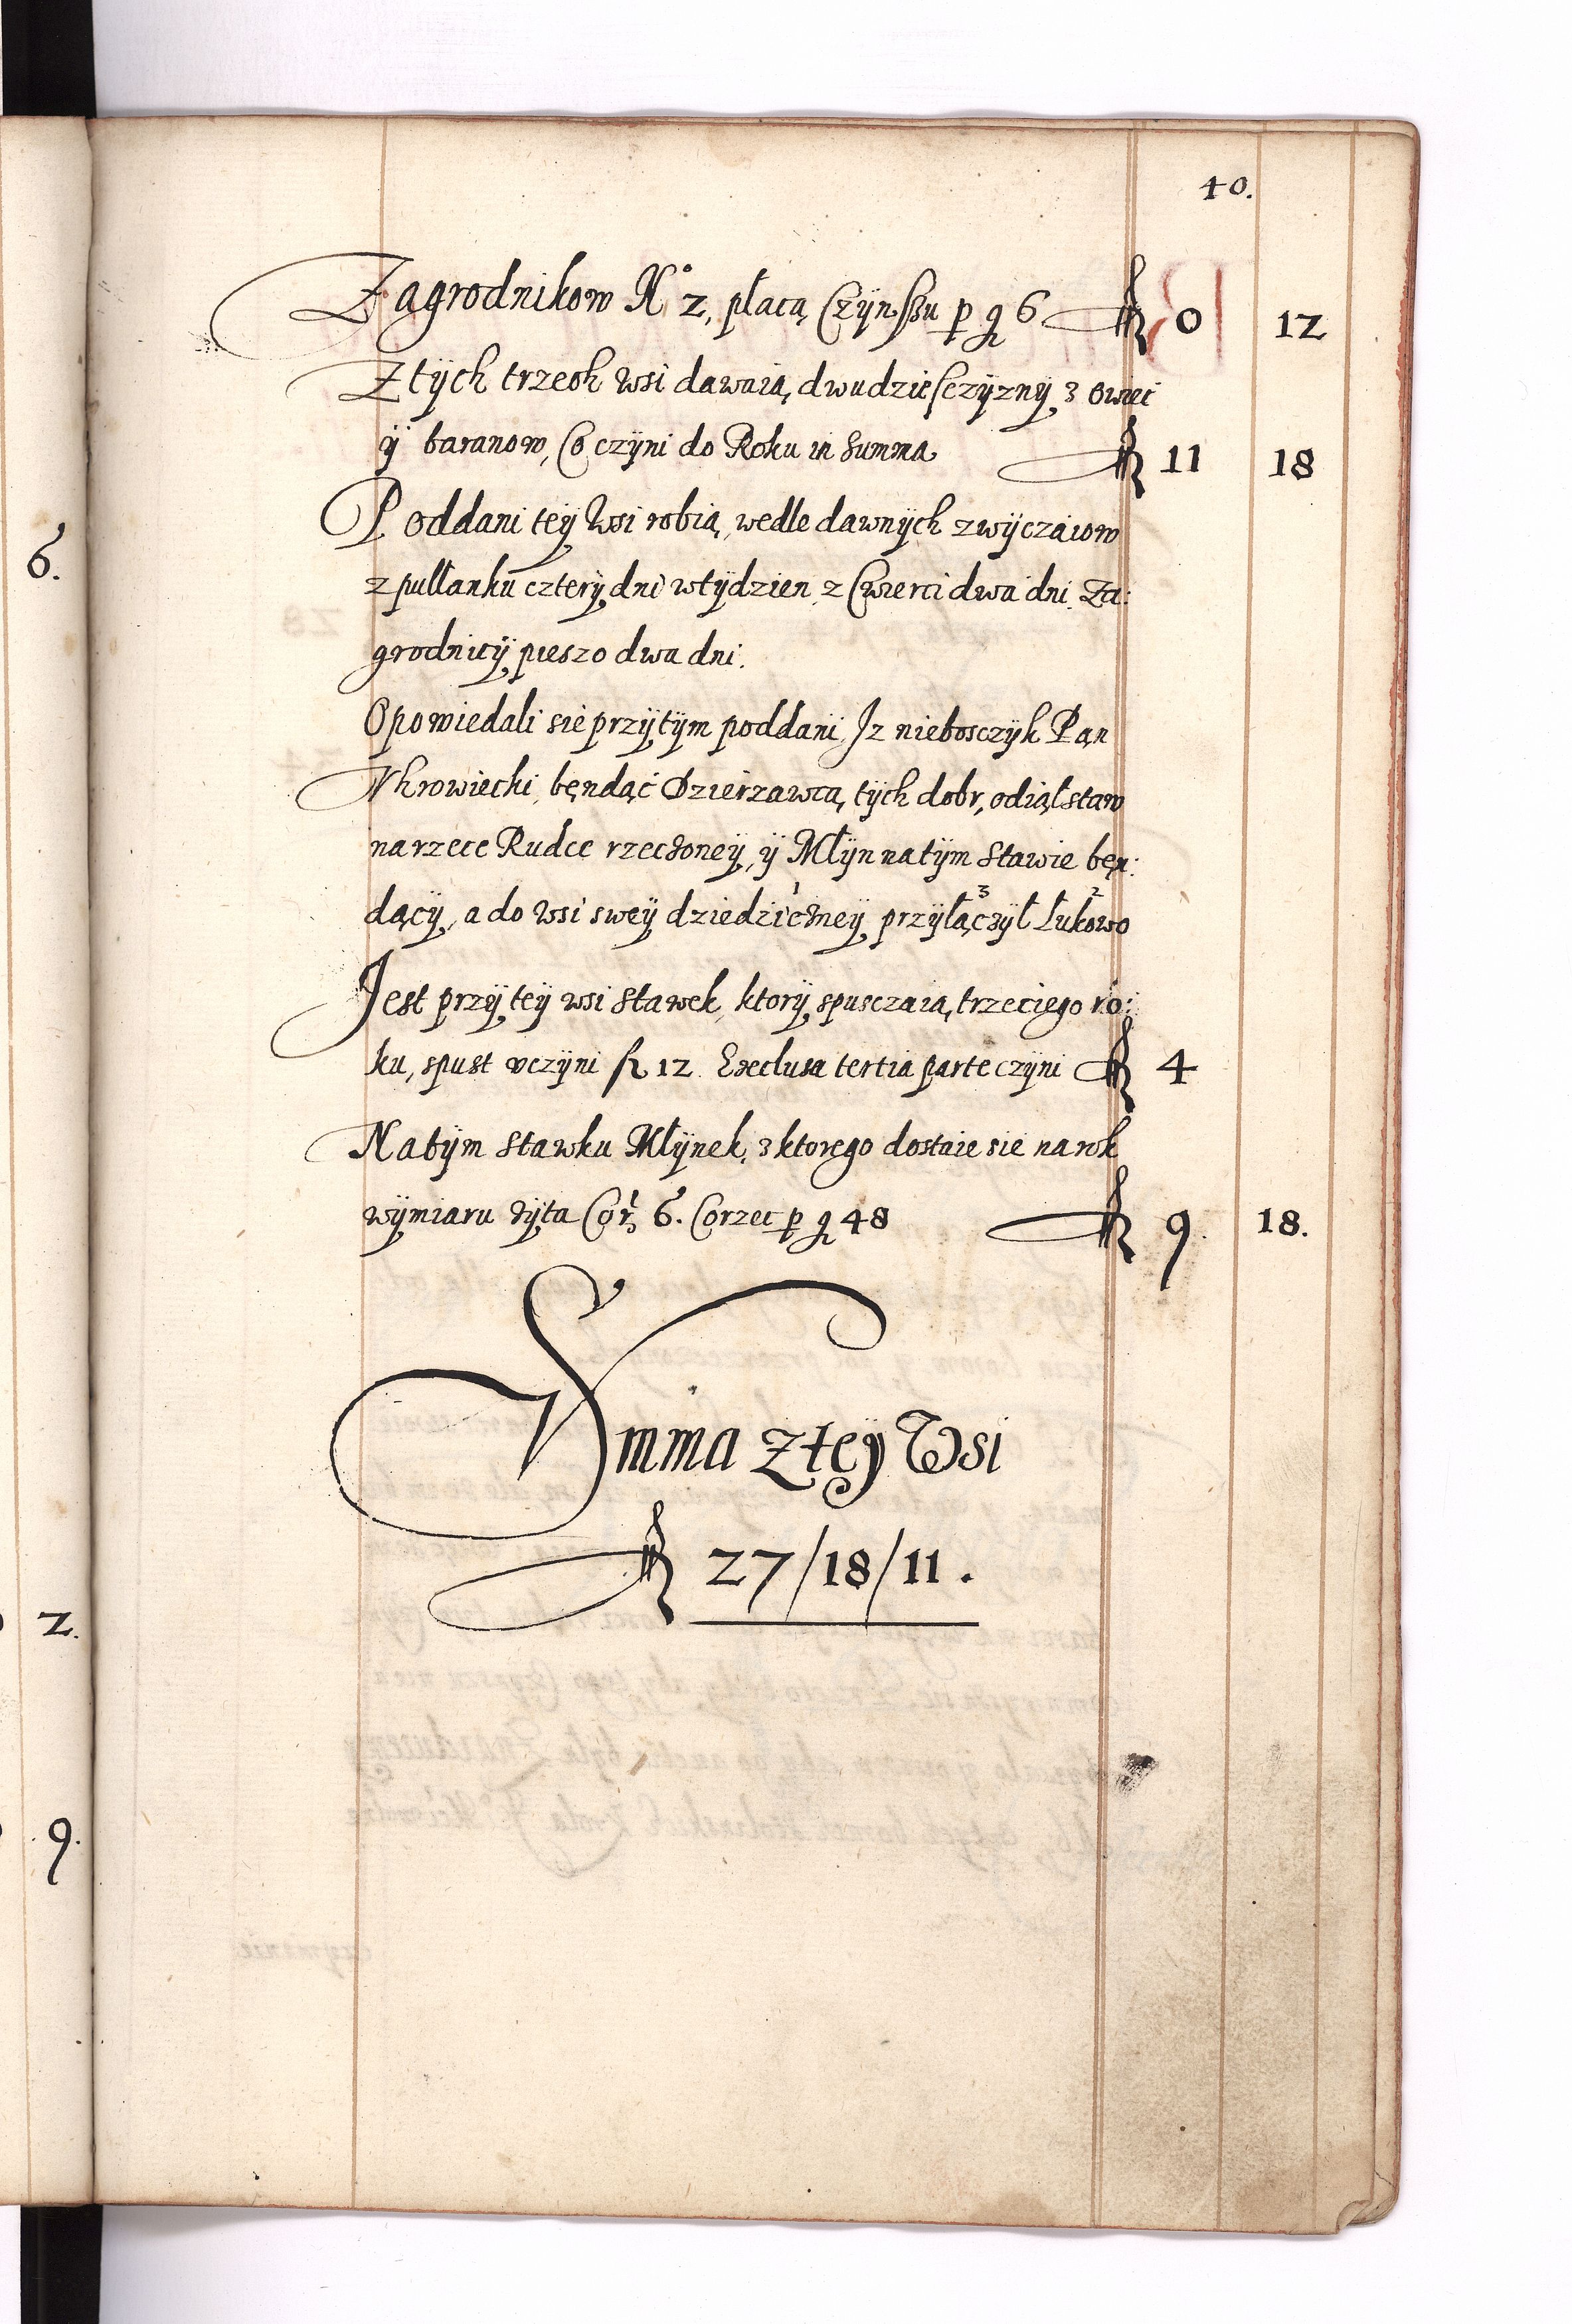 40.
Zagrodnikow No 2, płacą Czÿnsszu p g 6 fl 0 12
Z tÿch trzech wsi dawaią dwudziesczÿznÿ z owiec
ÿ baranow, Co czÿni do Roku in summa fl 11 18
Poddani teÿ Wsi robią, wedle dawnÿch zwÿczaiow
z pułłanku czterÿ dni w tÿdzien, z Cwierci dwa dni. Za:
grodnicÿ pieszo dwa dni.
Opowiedali sie przÿ tÿm poddani, Jz nieboszczÿk Pan
Vhrowiecki, bęndąć Dzierzawcą tÿch dobr, odiął staw
na rzece Rudce rzeczoneÿ, ÿ Młÿn na tÿm stawie bęn:
dącÿ, a do wsi sweÿ dziedziczneÿ 1 przÿłączÿł 3 Łukowo 2
Jest przÿ teÿ wsi stawek, ktorÿ spusczaią trzeciego ro:
ku, spust vczÿni fl 12 Exclusa tertia parte czÿni fl 4
Na tÿm stawku Młÿnek, z ktorego dostaie sie na rok
wÿmiaru zÿta Cor. 6. Corzec p g 48 fl 9. 18.
Summa z teÿ Wsi
fl 27/18/11.
6.
2.
9.